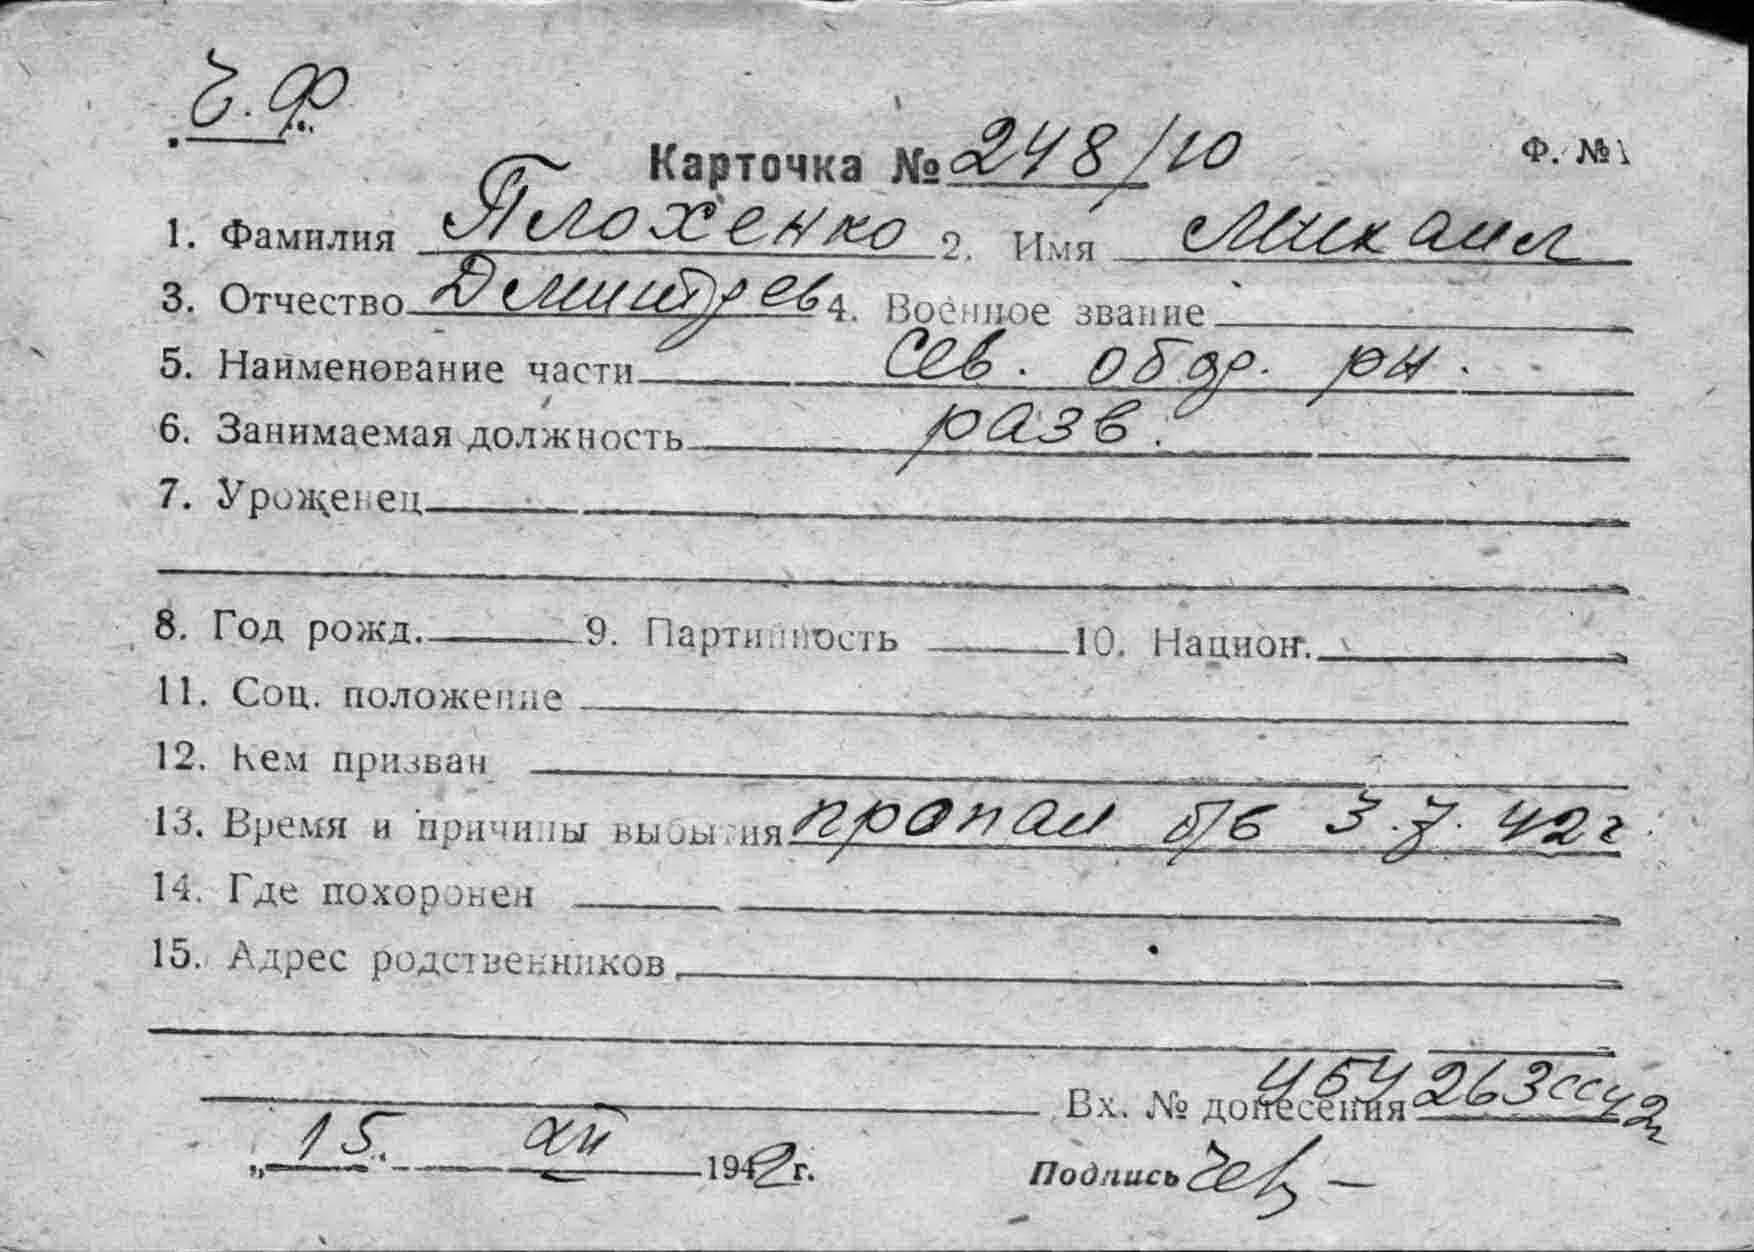 Ч.Ф
Карточка № 248/10
Ф. №1
1. Фамилия Плохенко 2. Имя Михаил
3. Отчество Дмитрев 4. Военное звание
5. Наименование части Сев. обор. рн.
6. Занимаемая должность разв.
7. Уроженец
8. Год рожд. 9. Партийность 10. Национ.
11. Соц. положение
12. Кем призван
13. Время и причины выбытия пропал б/в 3.7.42г
14. Где похоронен
15. Адрес родственников
Вх. № донесения 263сс 42
„15“ XII 1942г.
Подпись